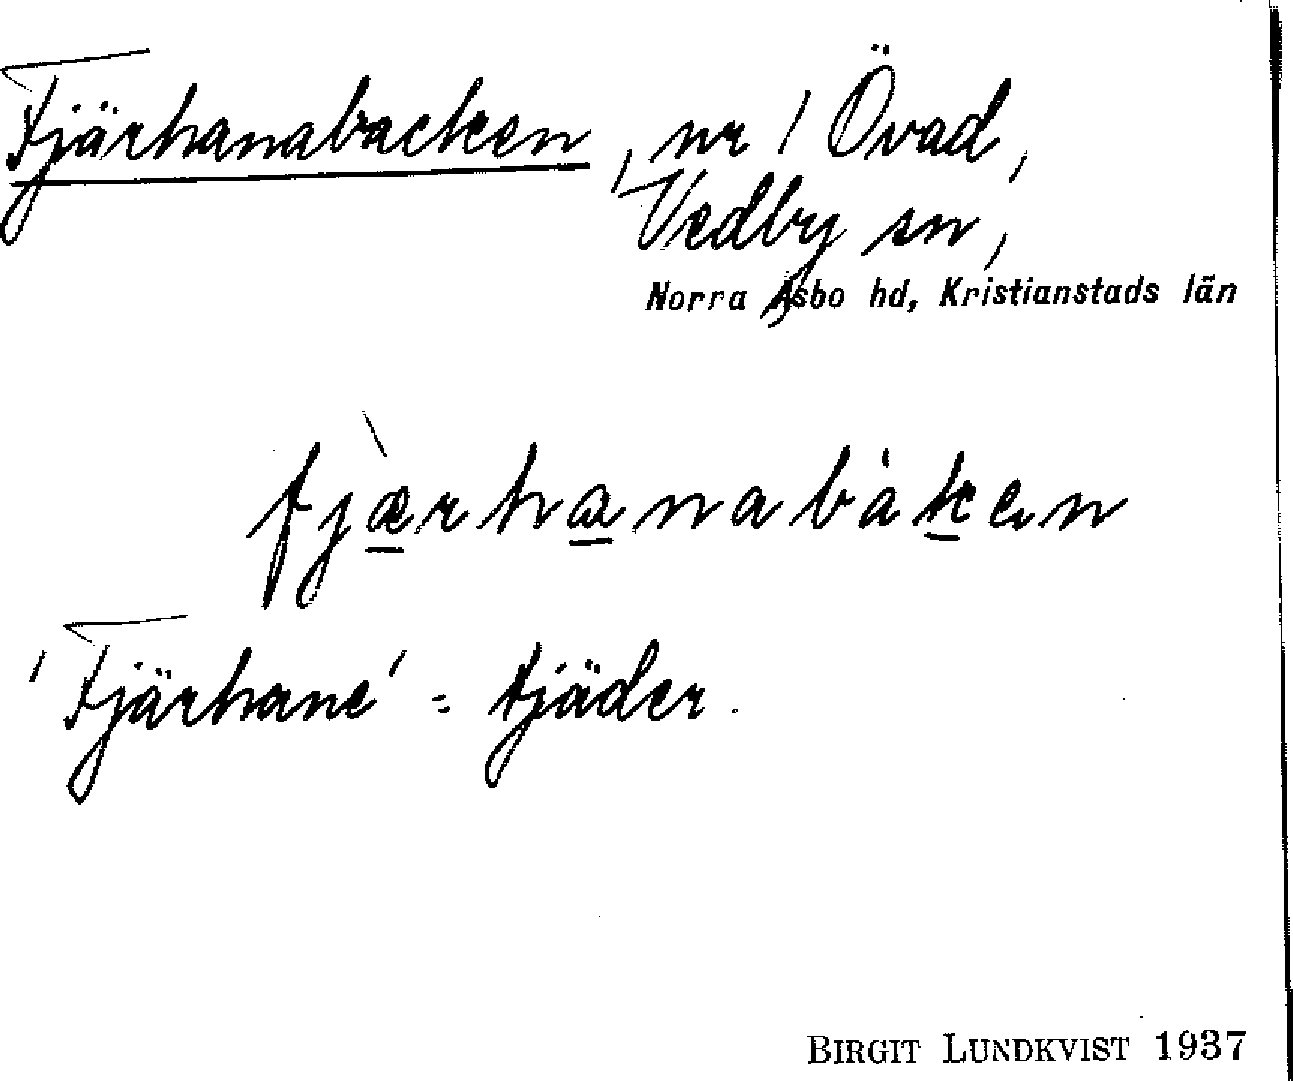 Tjärhanabacken, nr 1 Övad,
Vedby sn,
Norra Åsbo hd, Kristianstads län
tjærhanabàken
'Tjärhane' = tjäder.
BIRGIT LUNDKVIST 1937